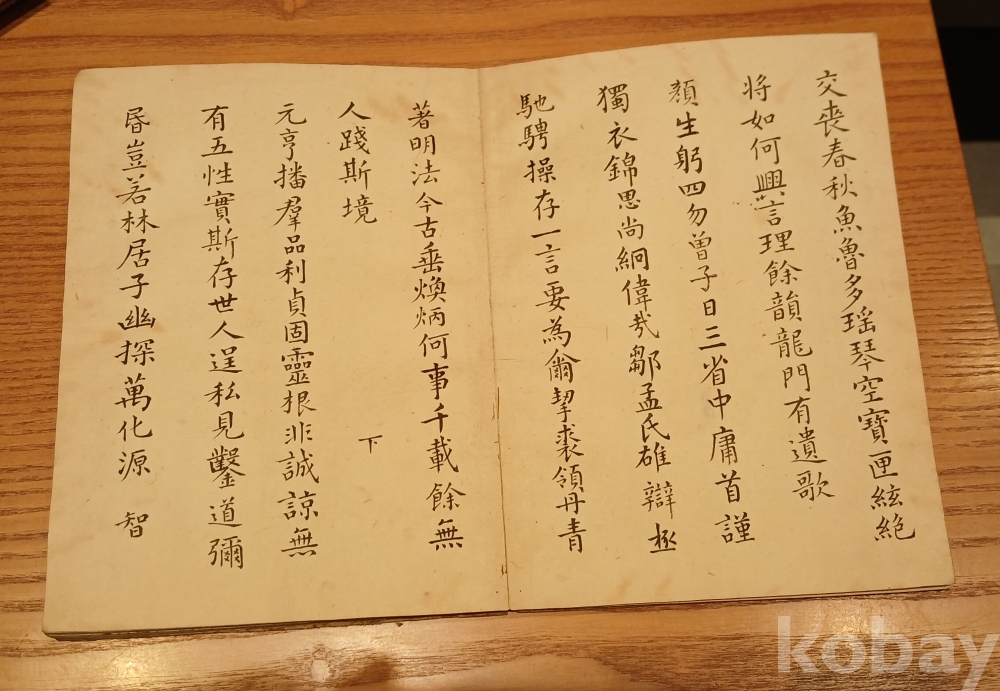 交喪春秋魚魯多瑶琴空寶匣絃絕
將如何興言理餘韻龍門有遺歌
顏生躬四勿曾子日三省中庸首謹
獨衣錦思尚絅偉哉鄒孟氏雄辯極
馳騁操存一言要為爾挈裘領丹青
著明法今古垂煥炳何事千載餘無
人踐斯境 下
元亨播羣品利貞固靈根非誠諒無
有五性實斯存世人逞私見鑿道彌
昬豈若林居子幽探萬化源 智
kobay